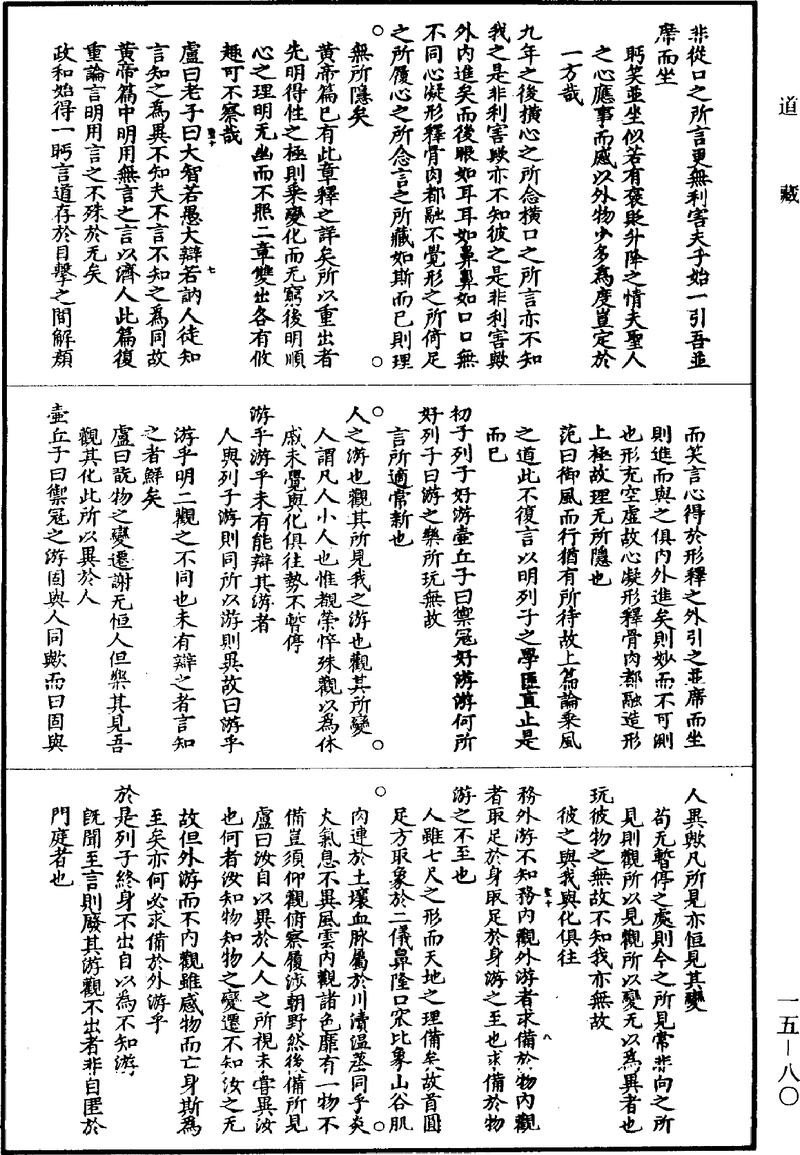 道藏
非從口之所言更無利害夫子始一引吾並
席而坐
眄笑並坐似若有褒貶升降之情夫聖人
之心應事而感以外物少多為度豈定於
一方哉
九年之後橫心之所念橫口之所言亦不知
我之是非利害歟亦不知彼之是非利害歟
外內進矣而後眼如耳耳如鼻鼻如口口無
不同心凝形釋骨肉都融不覺形之所倚足
之所履心之所念言之所藏如斯而已則理
無所隱矣
黃帝篇已有此章釋之詳矣所以重出者
先明得性之極則乘變化而无窮後明順
心之理明无幽而不照二章雙出各有攸
趣可不察哉
盧曰老子曰大智若愚大辯若訥人徒知
言知之為異不知夫不言不知之為同故
黃帝篇中明用無言之言以濟人此篇復
重論言明用言之不殊於无矣
政和始得一眄言道存於目擊之間解顏
而笑言心得於形釋之外引之並席而坐
則進而與之俱內外進矣則妙而不可測
也形充空虛故心凝形釋骨肉都融造形
上極故理无所隱也
范曰御風而行猶有所待故上篇論乘風
之道此不復言以明列子之學匪直止是
而已
初子列子好游壺丘子曰禦寇好游游何所
好列子曰游之樂所玩無故
言所適常新也
人之游也觀其所見我之游也觀其所變
人謂凡人小人也惟覩榮悴殊觀以為休
戚未覺與化俱往勢不暫停
游乎游乎未有能辯其游者
人與列子游則同所以游則異故曰游乎
游乎明二觀之不同也未有辯之者言知
之者鮮矣
盧曰翫物之變遷謝无恒人但樂其見吾
觀其化此所以異於人
壺丘子曰禦寇之游固與人同歟而曰固與
人異歟凡所見亦恒見其變
苟无暫停之處則今之所見常非向之所
見則觀所以見觀所以變无以為異者也
玩彼物之無故不知我亦無故
彼之與我與化俱往
務外游不知務內觀外游者求備於物內觀
者取足於身取足於身游之至也求備於物
游之不至也
人雖七尺之形而天地之理備矣故首圓
足方取象於二儀鼻隆口窊比象山谷肌
肉連於土壤血脉屬於川瀆溫蒸同乎炎
火氣息不異風雲內觀諸色靡有一物不
備豈須仰觀俯察履涉朝野然後備所見
盧曰汝自以異於人人之所視未嘗異汝
也何者汝知物知物之變遷不知汝之无
故但外游而不內觀雖感物而亡身斯為
至矣亦何必求備於外游乎
於是列子終身不出自以為不知游
既聞至言則廢其游觀不出者非自匿於
門庭者也
一五－八〇